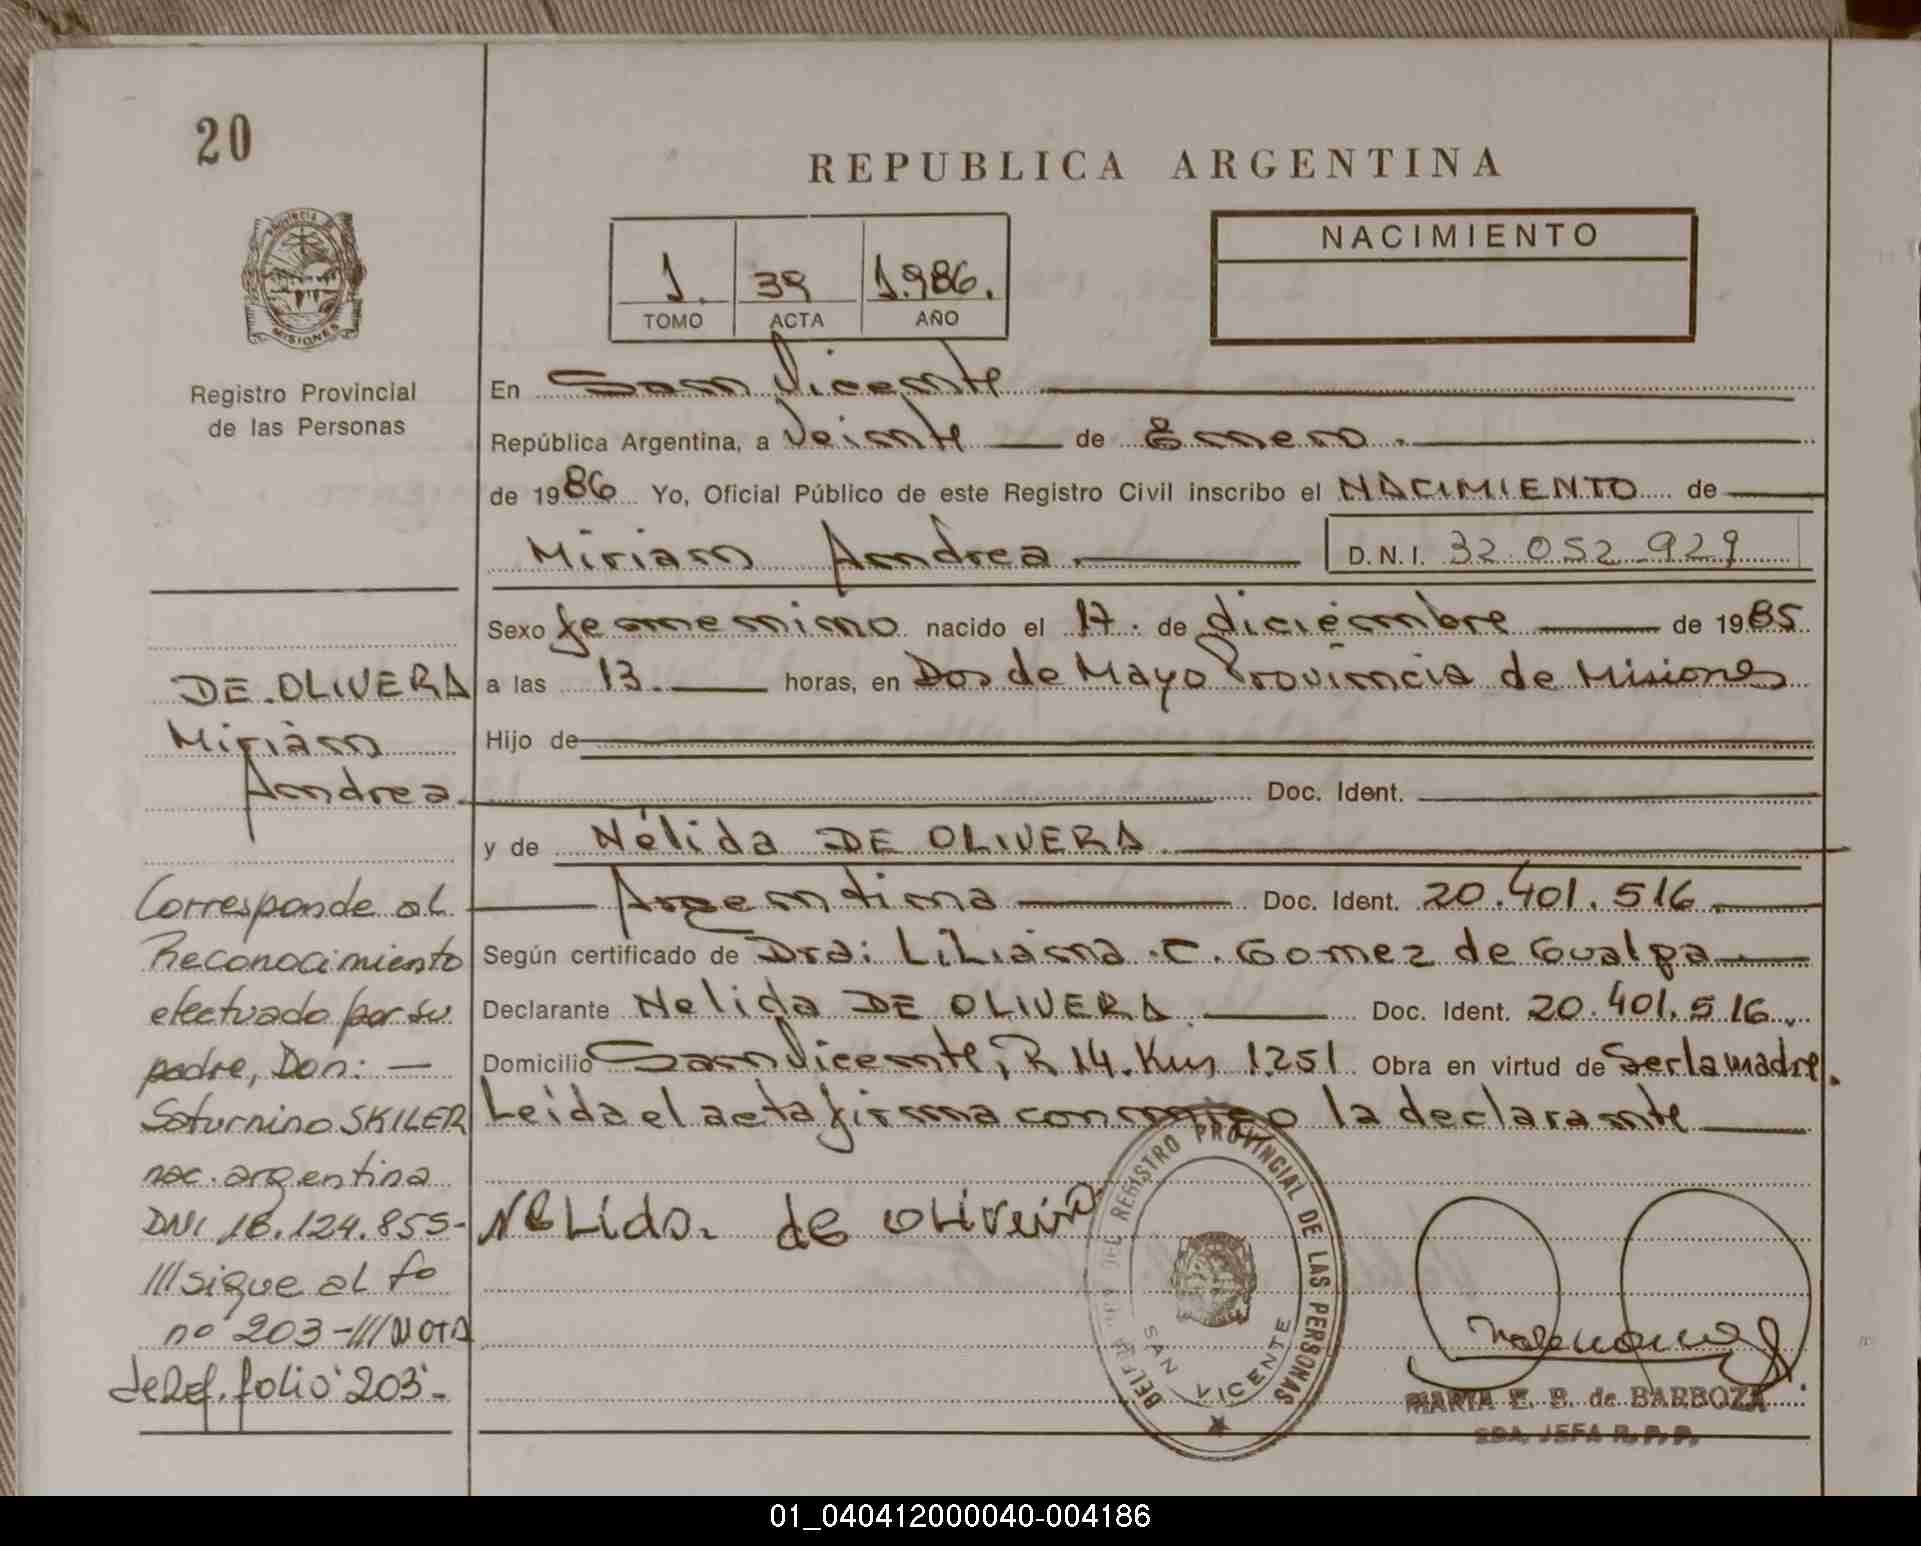 20
REPUBLICA ARGENTINA
MISIONES
Registro Provincial
de las Personas
1. 39 1.986.
TOMO ACTA AÑO
NACIMIENTO
En San Vicente
República Argentina, a Veinte de Enero.
de 1986 Yo, Oficial Público de este Registro Civil inscribo el NACIMIENTO de
Miriam Andrea
D.N.I. 32.052.929
Sexo femenino nacido el 17. de diciembre de 1985
a las 13. horas, en Dos de Mayo Provincia de Misiones
Hijo de
Doc. Ident.
y de Nélida DE OLIVERA
Argentina Doc. Ident. 20.401.516
Según certificado de Dra: Liliana .C. Gomez de Gualpa
Declarante Nelida DE OLIVERA Doc. Ident. 20.401.516.
Domicilio San Vicente, R 14. Km 1.251 Obra en virtud de Ser la madre.
Leida el acta firma conmigo la declarante
NELida. de OLiveira
DE OLIVERA
Miriam
Andrea
Corresponde al
Reconocimiento
efectuado por su
padre, Don: —
Saturnino SKILER
nac. argentina
DNI 18.124.855-
///sigue al fo
no 203-///NOTA
de Ref. folio 203-
DEL REGISTRO PROVINCIAL DE LAS PERSONAS
SAN VICENTE
MARIA E. B. de BARBOZA
SDA. JEFA R.P.P.
01_040412000040-004186